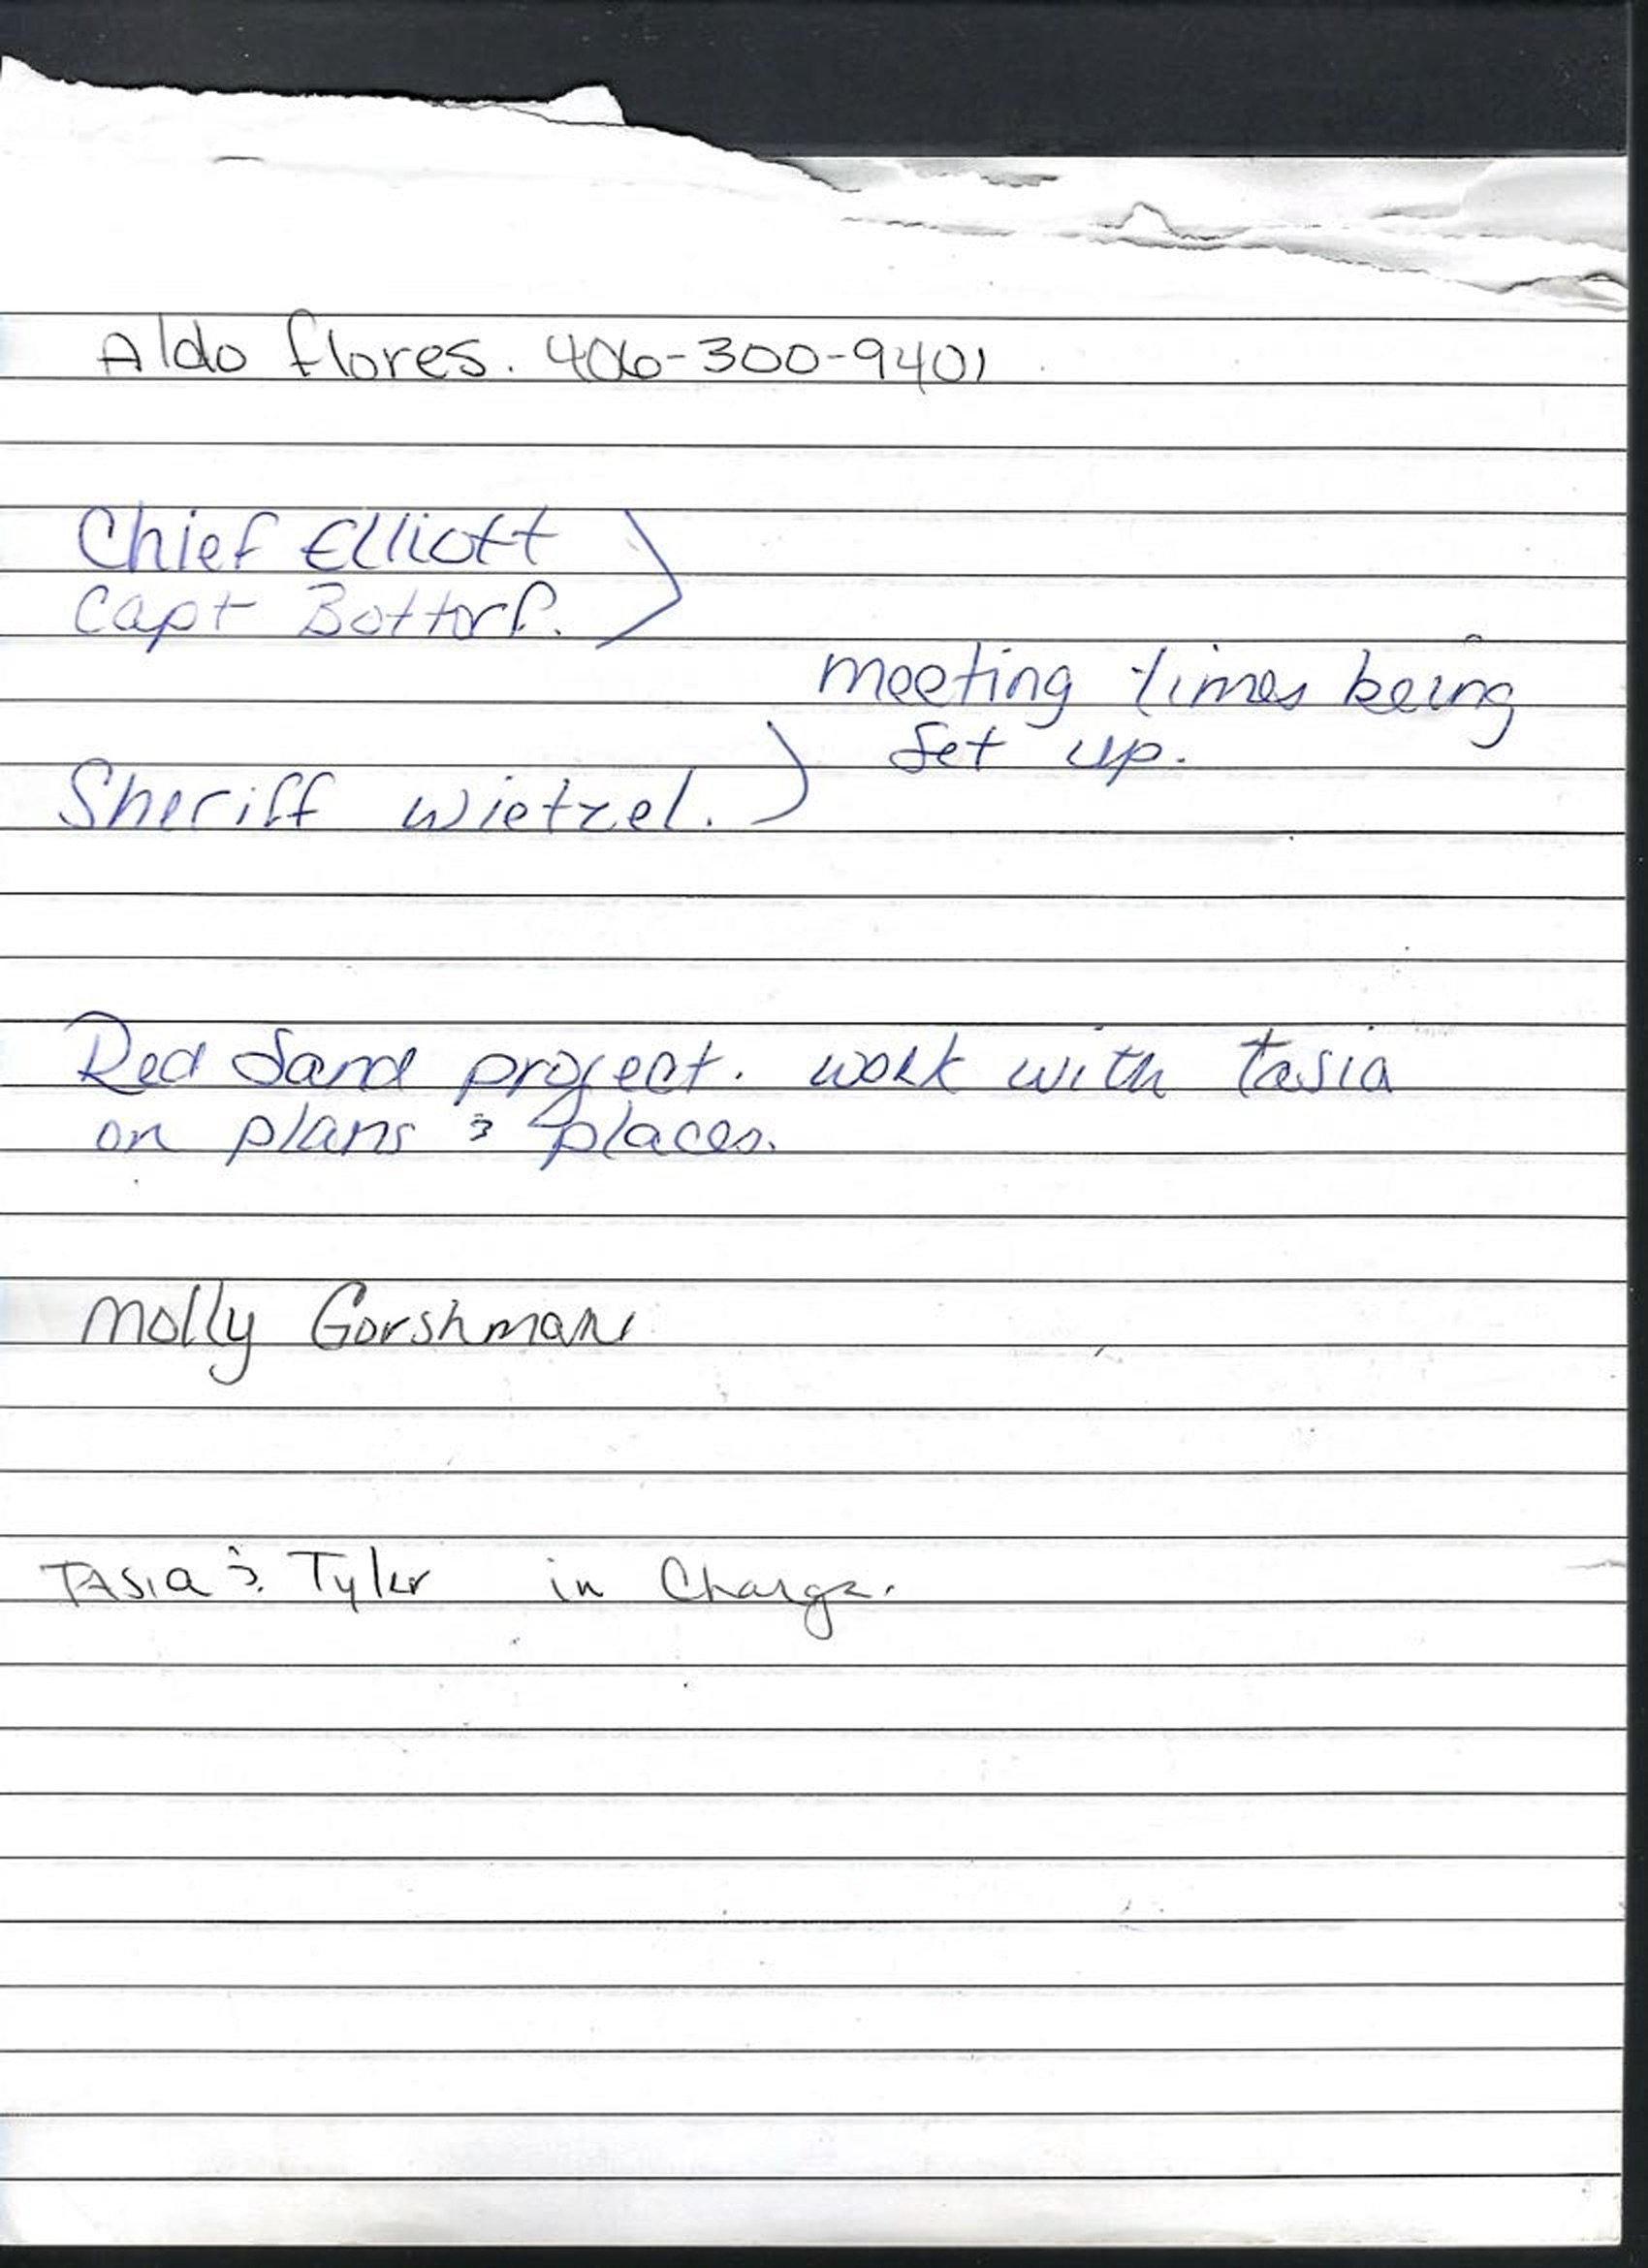 Aldo flores. 406-300-9401
Chief Elliott
Capt Bottorf.
meeting times being
set up.
Sheriff wietzel.
Red Sand project. work with Tasia
on plans & places.
Molly Gorshman
Tasia & Tyler in Charge.